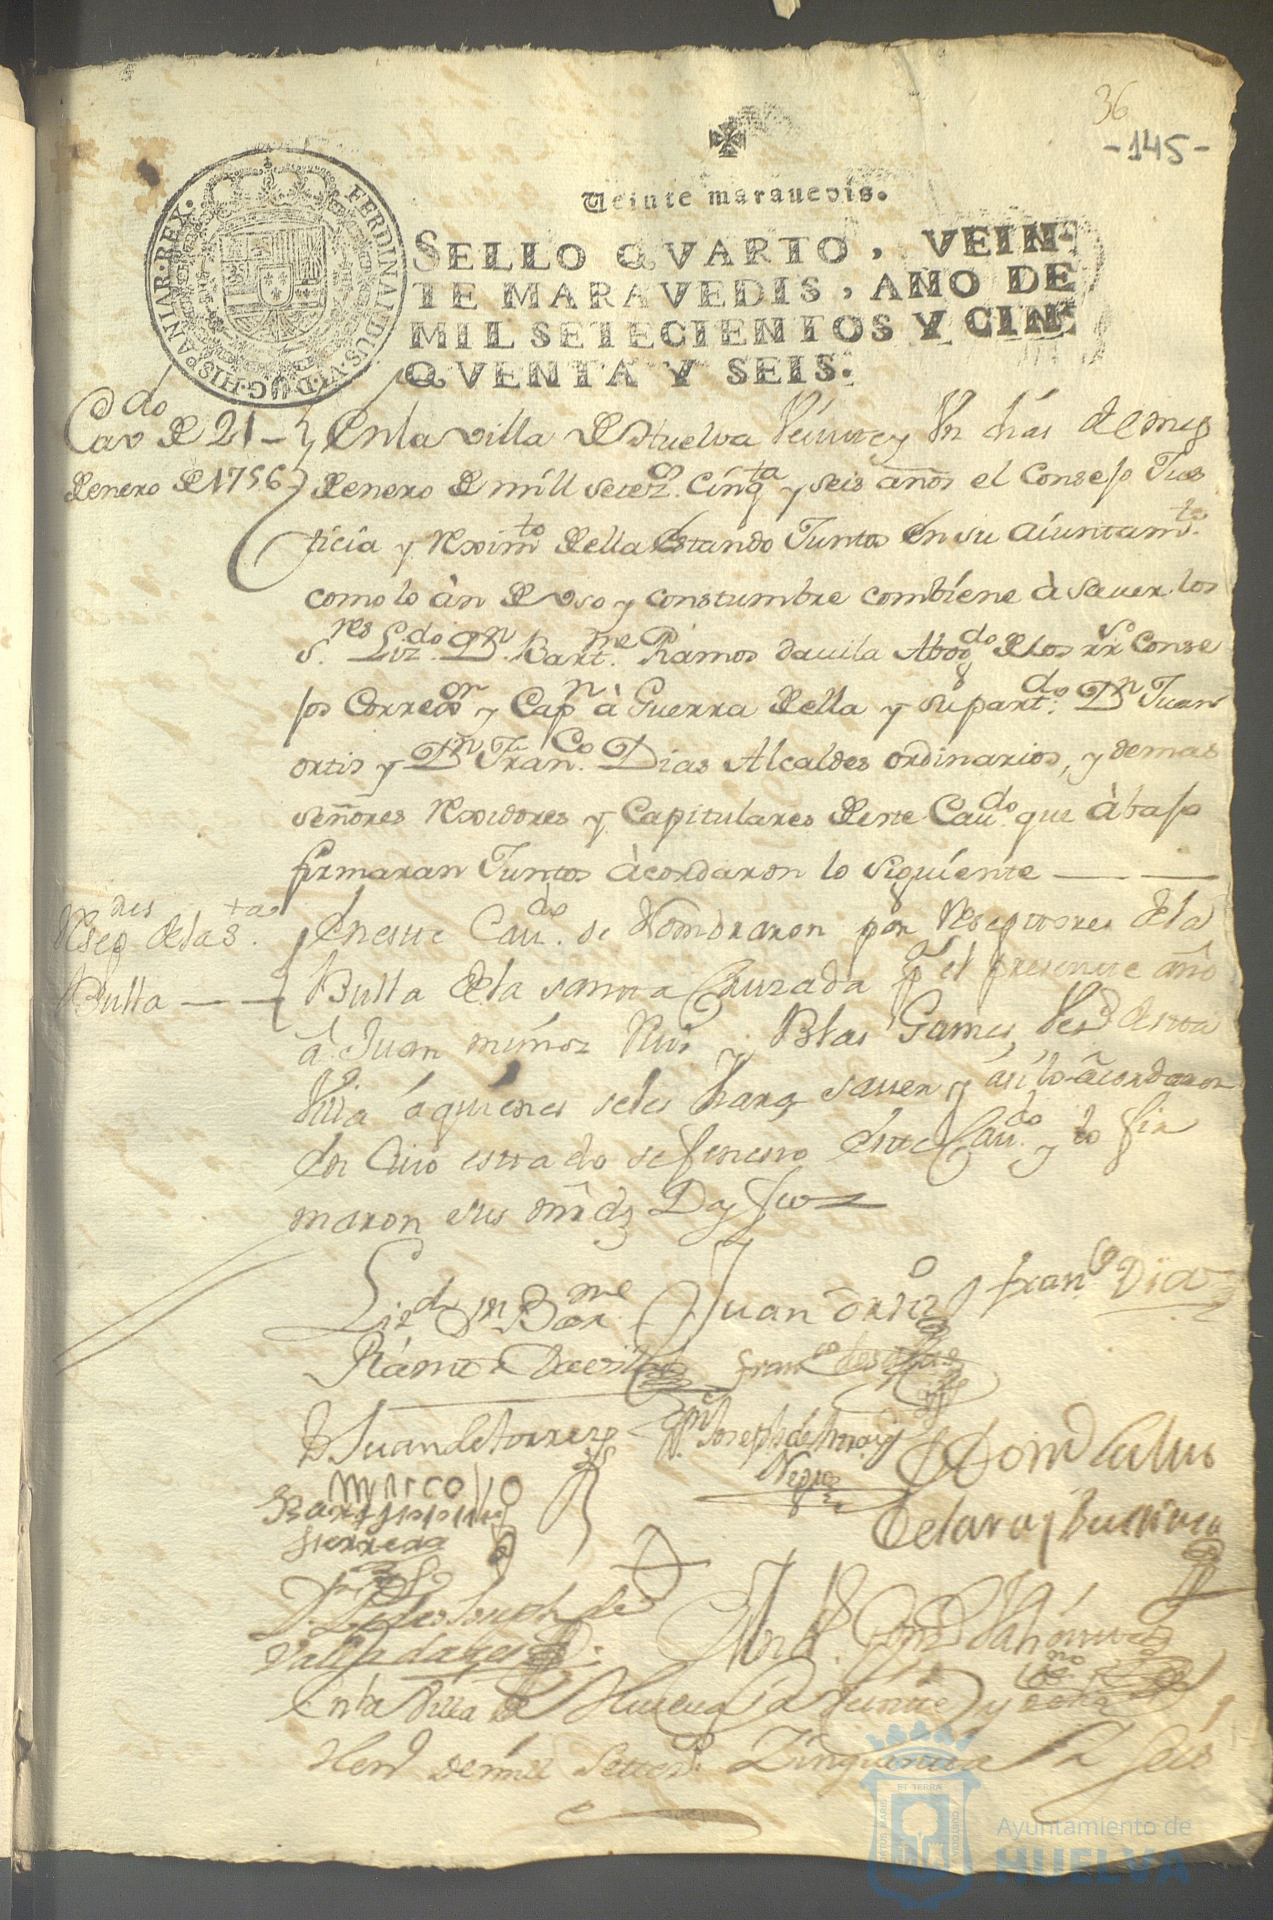 36
-145-
Veinte maravedis.
SELLO QVARTO, VEIN-
TE MARAVEDIS, AÑO DE
MIL SETECIENTOS Y CIN-
QVENTA Y SEIS.
FERDINANDUS·VI·D·G·HISPANIAR·REX·
Cavdo de 21
de enero de 1756
En la villa de Huelva Veinte y Un dias del mes
de enero de mill setezos. Cinqta y seis años el Consejo Jus
ticia y Reximto della Estando Juntos en su aiuntamto.
como lo àn de Uso y constumbre combiene à saver. los
Sres. Lizdo. Dn. Bartme. Ramos davila Abogdo de los rrs Conse
jos Correor y Capn à Guerra della y su partdo. Dn Juan
ortis y Dn Franco. Dias Alcaldes ordinarios, y demas
señores Rexidores y Capitulares deste Caudo. que àbajo
firmaran Juntos àcordaron lo siguiente
Resepdres de la Sta.
Bulla
En este Caudo. se Nombraron por Reseptores de la
Bulla de la santa Cruzada pa el presente año
â Juan muñoz Ruis y Blas Games, Vesos desta
Villa â quienes se les hara saver y asi lo acordaron
En Cuio estado se feneсio este Caudo. y lo fir
maron sus mrds Doy fee
Lizdo Dn Barme
Ramos Davila
Juan ortiz
Franco Diaz
Franco de
D Juan de torres
Dn Joseph de
Negro
Marco
Barttolome
Sierra
En la Villa de Huelva a Veinte y
de mill Settezos. Zinquenta y Seis
ET TERRA
Ayuntamiento de
HUELVA